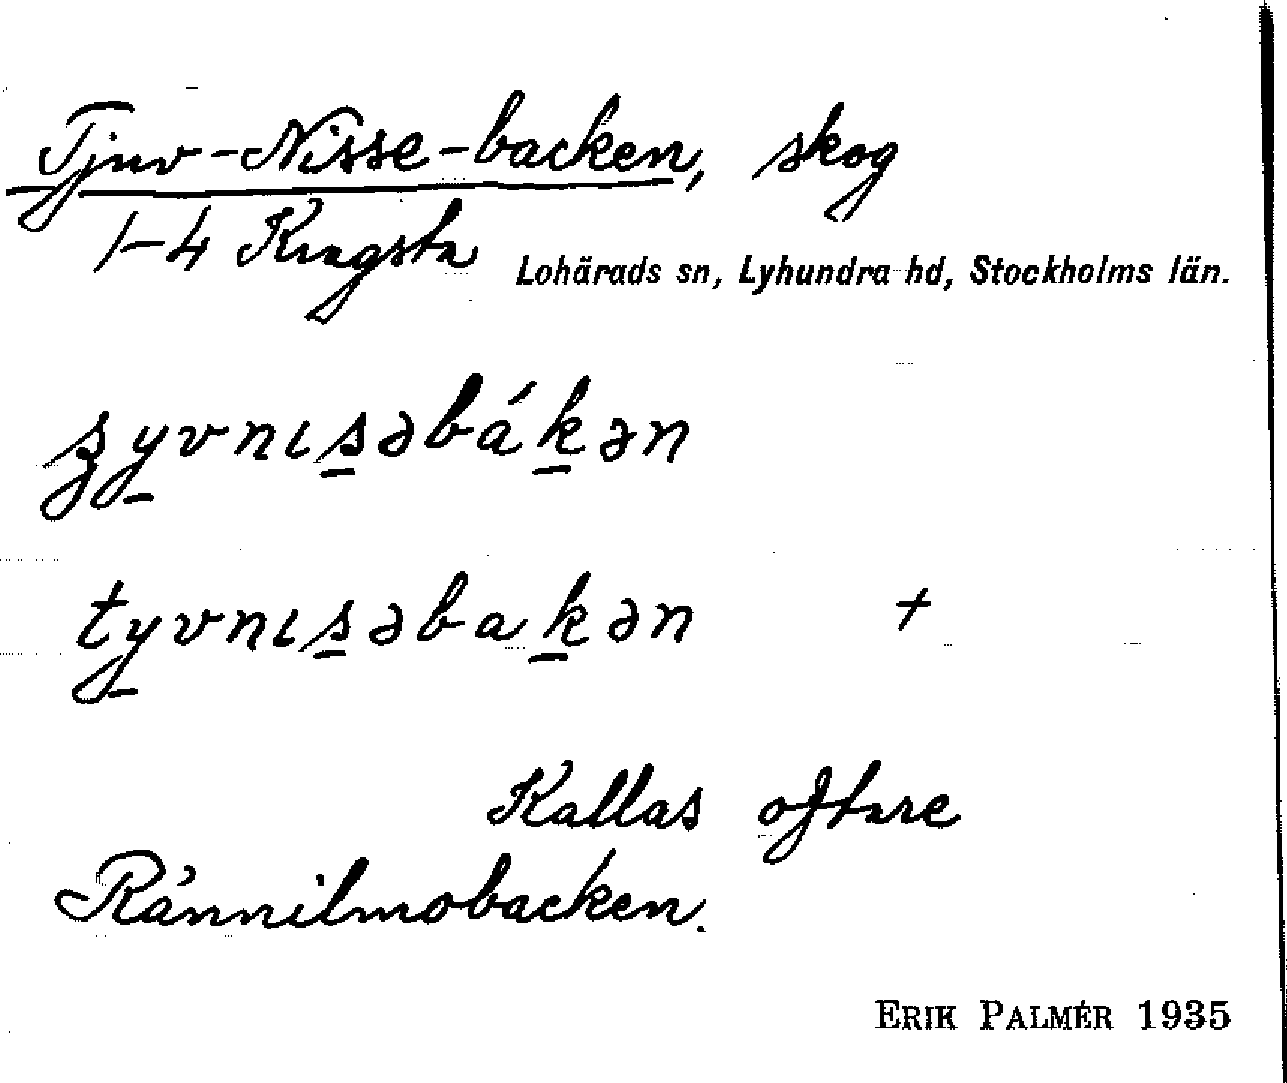 Tjuv-Nisse-backen, skog
1-4 Kragsta Lohärads sn, Lyhundra hd, Stockholms län.
ʂyvnısəbákən
tyvnısəbakən +
Kallas oftare
Rånnilmobacken.
ERIK PALMÉR 1935